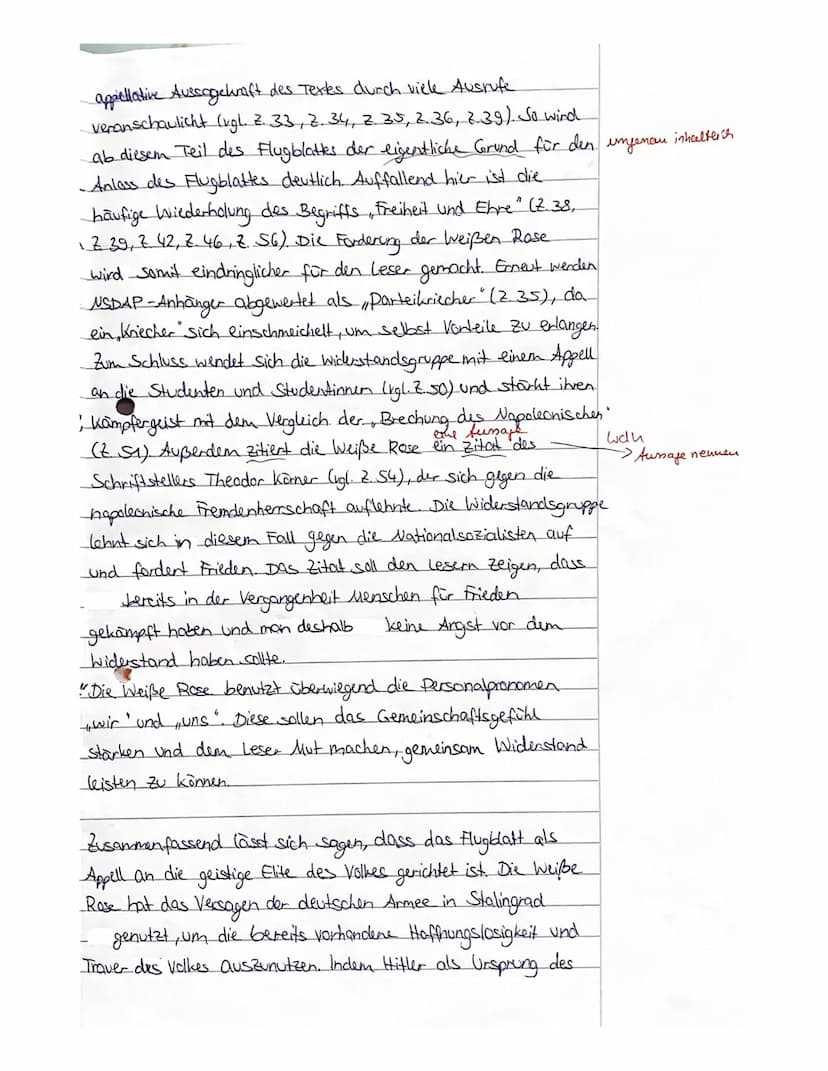 appellative Aussagekraft des Textes durch viele Ausrufe
veranschaulicht (vgl. Z. 33, Z. 34, Z. 35, Z. 36, Z. 39). So wird
ab diesem Teil des Flugblattes der eigentliche Grund für den ungenau inhaltlich
Anlass des Flugblattes deutlich. Auffallend hier ist die
häufige Wiederholung des Begriffs „Freiheit und Ehre" (Z. 38,
Z 39, Z 42, Z. 46, Z. 56). Die Forderung der Weißen Rose
wird somit eindringlicher für den Leser gemacht. Erneut werden
NSDAP-Anhänger abgewertet als „Parteikriecher" (Z. 35), da
ein „Kriecher" sich einschmeichelt, um selbst Vorteile zu erlangen.
Zum Schluss wendet sich die Widerstandsgruppe mit einem Appell
an die Studenten und Studentinnen (vgl. Z. 50) und stärkt ihren
Kämpfergeist mit dem Vergleich der „Brechung des Napoleonischen"
eine Aussage
(Z 51) Außerdem zitiert die Weiße Rose ein Zitat des wdh
→ Aussage nennen
Schriftstellers Theodor Körner (vgl. Z. 54), der sich gegen die
napoleonische Fremdenherrschaft auflehnte. Die Widerstandsgruppe
lehnt sich in diesem Fall gegen die Nationalsozialisten auf
und fordert Frieden. Das Zitat soll den Lesern zeigen, dass
bereits in der Vergangenheit Menschen für Frieden
gekämpft haben und man deshalb keine Angst vor dem
Widerstand haben sollte.
Die Weiße Rose benutzt überwiegend die Personalpronomen
„wir" und „uns". Diese sollen das Gemeinschaftsgefühl
stärken und dem Leser Mut machen, gemeinsam Widerstand
leisten zu können.
Zusammenfassend lässt sich sagen, dass das Flugblatt als
Appell an die geistige Elite des Volkes gerichtet ist. Die Weiße
Rose hat das Versagen der deutschen Armee in Stalingrad
genutzt, um die bereits vorhandene Hoffnungslosigkeit und
Trauer des Volkes auszunutzen. Indem Hitler als Ursprung des